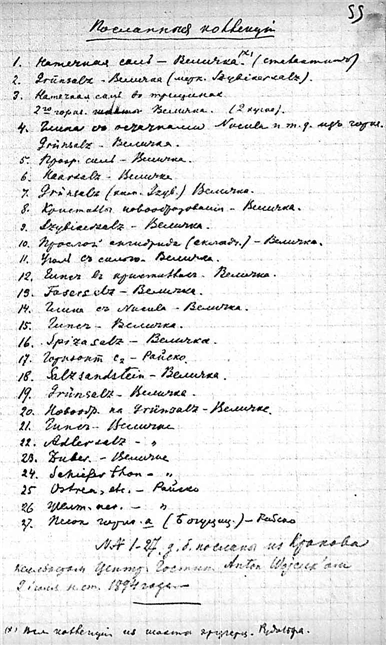 55
Посланныя коллекціи
1. Натечная соль – Величка. (*) (сталактиты)
2. Grünsalz – Величка (Szybikersalz).
3. Натечная соль въ трещинахъ
2го гориз. шахты Величка. (2 куска).
4. Глина съ остатками Nucula и т. д. изъ гориз.
Grünsalz – Величка.
5. Прозр. соль – Величка.
6. – Величка
7. Grünsalz (Szyb.) Величка.
8. Кристаллы новообразованія – Величка.
9. Szybikersalz – Величка.
10. Прослой ангидрида (складч.) – Величка.
11. Уголь съ солью – Величка.
12. Гипсъ въ кристаллахъ – Величка.
13. Fasersalz – Величка.
14. Глина съ Nucula – Величка.
15. Гипсъ – Величка.
16. Spizasalz – Величка.
17. Горизонт c2 – Райско.
18. Salzsandstein – Величка.
19. Grünsalz – Величка.
20. Новообр. на Grünsalz – Величке.
21. Гипсъ – Величке
22. Adlersalz – „
23. – Величке
24. Schieferthon – „
25 Ostrea, etc. – Райско
26 – „
27. Песок гориз. a (Богуциц.) – Райско
№№ 1–27 д. б. посланы из Кракова
Центр. Гостин. Anton Wójcik'ом
2 іюня н. ст. 1894 года
(*) Вся коллекція из шахты эрцгерц. Рудольфа.